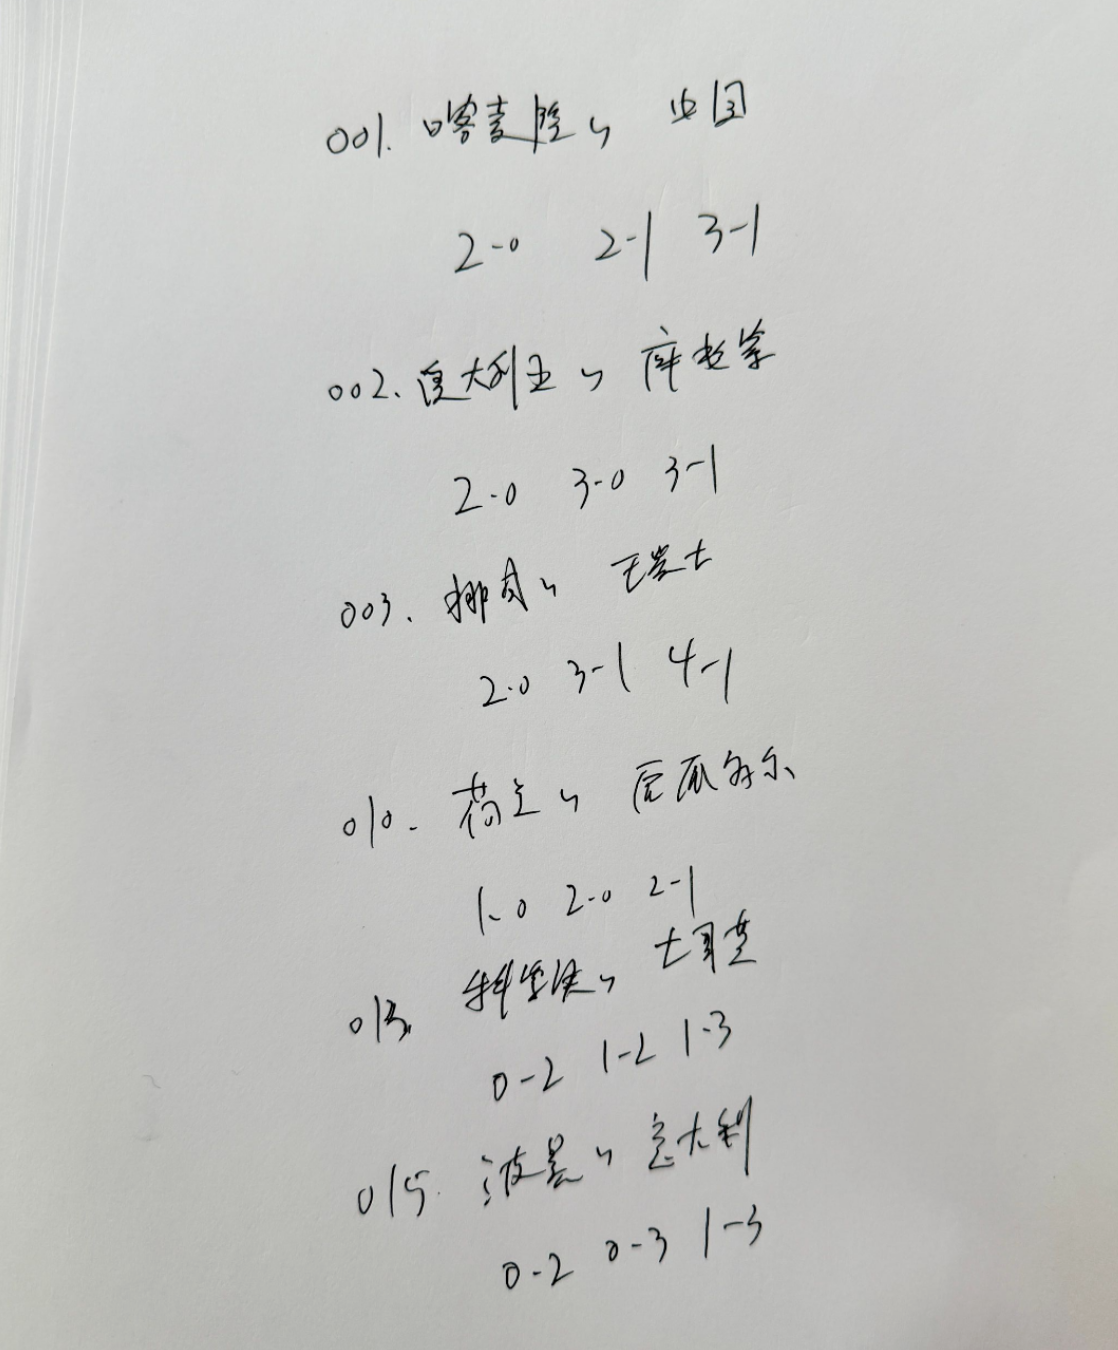 001. 喀麦隆vs 中国
2-0 2-1 3-1
002. 澳大利亚vs 库拉索
2-0 3-0 3-1
003. 挪威vs 瑞士
2-0 3-1 4-1
010. 荷兰vs 厄瓜多尔
1-0 2-0 2-1
013. 科索沃vs 土耳其
0-2 1-2 1-3
015. 波黑vs 意大利
0-2 0-3 1-3